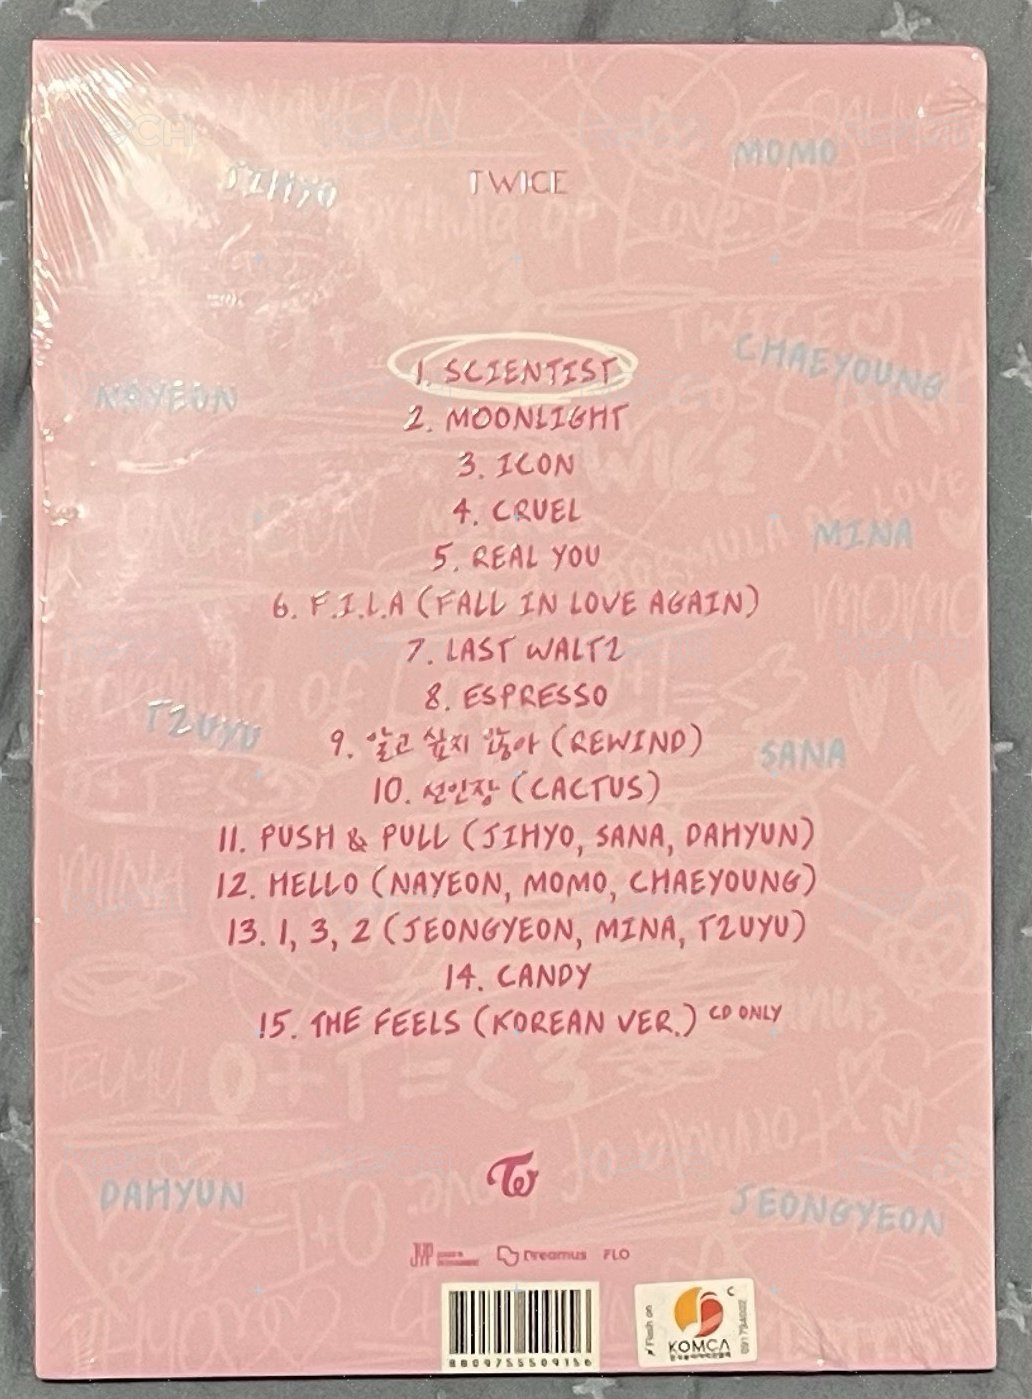 JIHYO
TWICE
MOMO
Formula of Love
NAYEON
CHAEYOUNG
1. SCIENTIST
2. MOONLIGHT
3. ICON
4. CRUEL
MINA
5. REAL YOU
6. F.I.L.A (FALL IN LOVE AGAIN)
7. LAST WALTZ
8. ESPRESSO
TZUYU
SANA
9. 알고 싶지 않아 (REWIND)
10. 선인장 (CACTUS)
11. PUSH & PULL (JIHYO, SANA, DAHYUN)
12. HELLO (NAYEON, MOMO, CHAEYOUNG)
13. 1, 3, 2 (JEONGYEON, MINA, TZUYU)
14. CANDY
15. THE FEELS (KOREAN VER.) CD ONLY
O+T=<3
DAHYUN
JEONGYEON
JYP
Dreamus
FLO
8809755509156
KOMCA